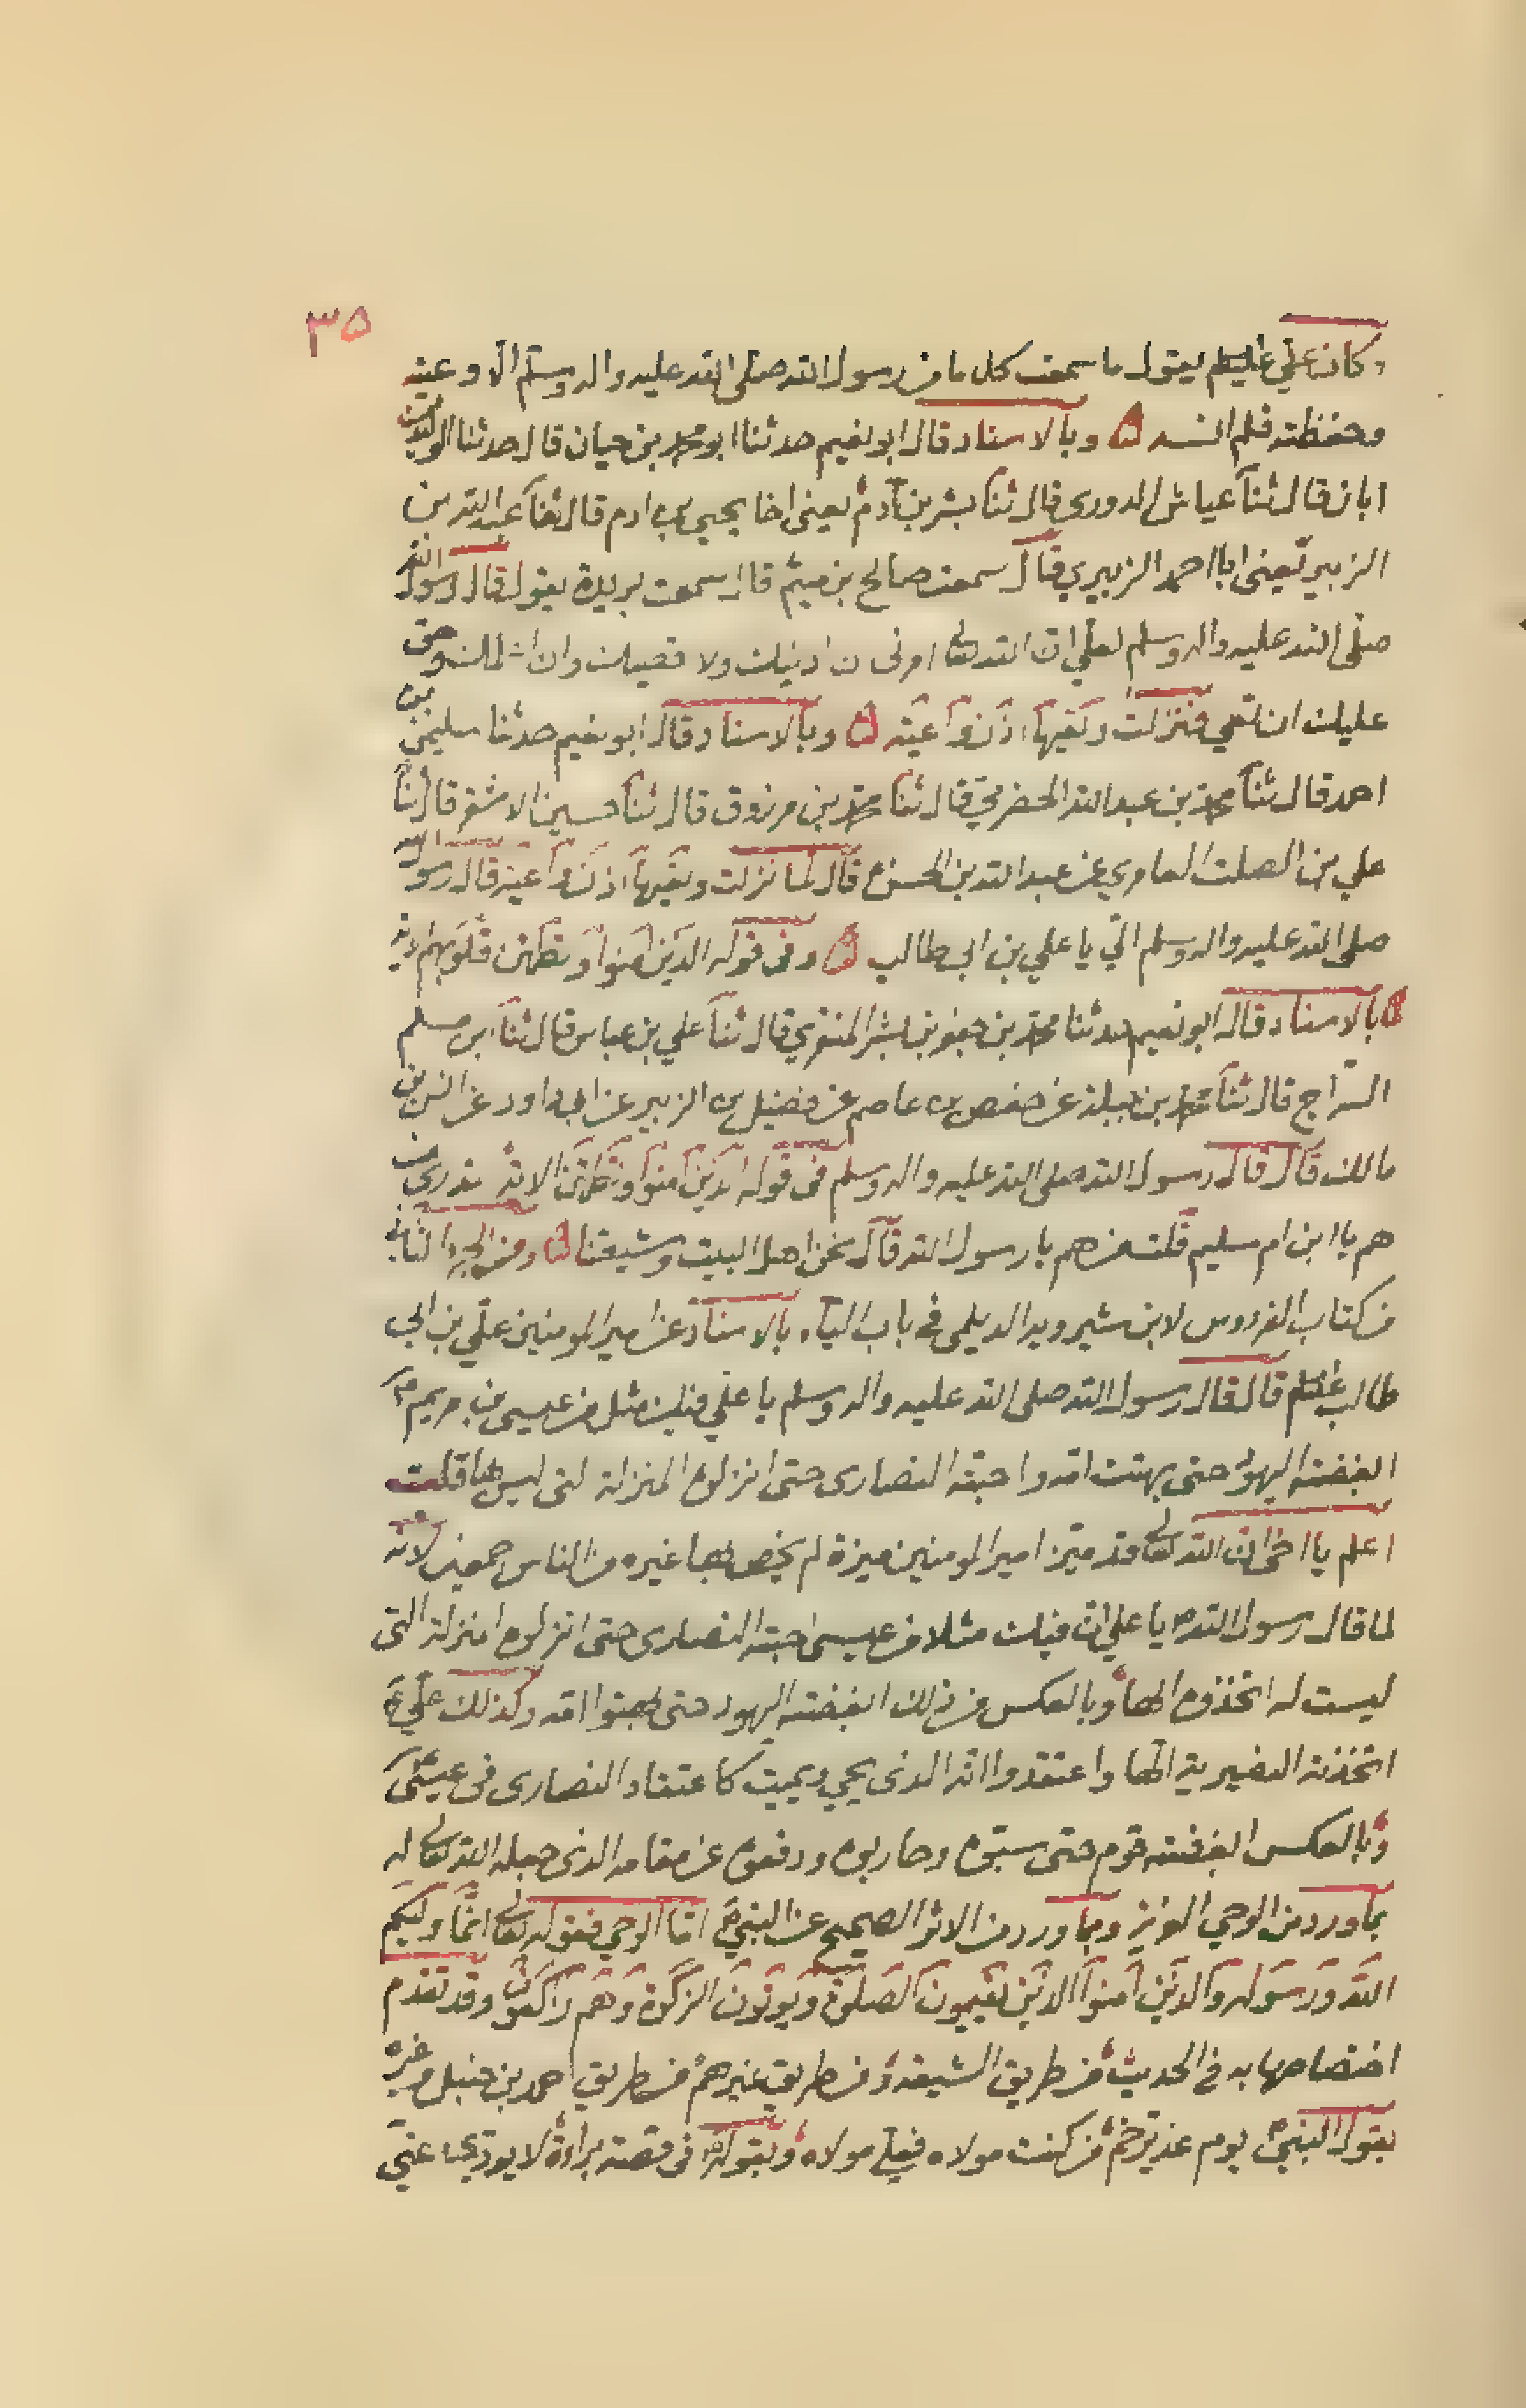 ٣٥
وكان علي عليه السلم يقول ما سمعت كلاما من رسول الله صلى الله عليه واله وسلم الا وعيته
وحفظته فلم انسه وبالاسناد قال ابو نعيم حدثنا ابو محمد بن حيان قال حدثنا الوليد بن
ابان قال ثنا عباس الدوري قال ثنا بشر بن آدم يعنى اخا يحيى بن ادم قال ثنا عبد الله بن
الزبير يعنى ابا احمد الزبيري قال سمعت صالح بن ميثم قال سمعت بريدة يقول قال رسول الله
صلى الله عليه واله وسلم لعلي ان الله تعالى امرنى ان ادنيك ولا اقصيك وان اعلمك وحق
عليك ان تعي فنزلت وتعيها اذن واعية وبالاسناد قال ابو نعيم حدثنا سليمن بن
احمد قال ثنا محمد بن عبد الله الحضرمي قال ثنا محمد بن مرزوق قال ثنا حسين الاشقر قال ثنا
علي بن الصلت العامري عن عبد الله بن الحسن قال لما نزلت وتعيها اذن واعية قال رسول الله
صلى الله عليه واله وسلم يا علي بن ابى طالب وفى قوله الذين امنوا وتطمئن قلوبهم الاية
بالاسناد قال ابو نعيم حدثنا محمد بن جعفر بن بشر المنقري قال ثنا علي بن عباس قال ثنا ابن مسلم
السراج قال ثنا محمد بن جبلة عن حفص بن عاصم عن فضيل بن الزبير عن ابى داود عن انس بن
مالك قال قال رسول الله صلى الله عليه واله وسلم فى قوله الذين امنوا وتطمئن الاية تدرى من
هم يا ابن ام سليم قلت من هم يا رسول الله قال نحن اهل البيت وشيعتنا ومن الجزء الثانى
من كتاب الفردوس لابن شيرويه الديلمى في باب الياء بالاسناد عن امير المومنين علي بن ابى
طالب عليه السلم قال قال رسول الله صلى الله عليه واله وسلم يا علي فيك مثل من عيسى بن مريم
ابغضته اليهود حتى بهتت امه واحبته النصارى حتى انزلوه المنزلة التى ليس لها قلت
اعلم يا اخى ان الله تعالى قد ميز امير المومنين ميزة لم يخص بها غيره من الناس اجمعين لانه
لما قال رسول الله ص يا علي ان فيك مثلا من عيسى احبته النصارى حتى انزلوه المنزلة التى
ليست له اتخذوه الها وبالعكس من ذلك ابغضته اليهود حتى بهتوا امه وكذلك علي ع
اتخذته النصيرية الها واعتقدوا انه الذى يحيي ويميت كاعتقاد النصارى فى عيسى
وبالعكس ابغضته قوم حتى سبوه وحاربوه ودفعوه عن مقامه الذى جعله الله تعالى له
بما ورد من الوحي العزيز وبما ورد من الاثر الصحيح عن النبي ص اما الوحي فقوله تعالى انما وليكم
الله ورسوله والذين امنوا الذين يقيمون الصلوة ويوتون الزكوة وهم راكعون وقد تقدم
اختصاصها به في الحديث من طريق الشيعة ومن طريق غيرهم من طريق احمد بن حنبل وغيره
بقول النبي ص يوم غدير خم من كنت مولاه فعلي مولاه وبقوله فى قصة براءة لا يودي عني